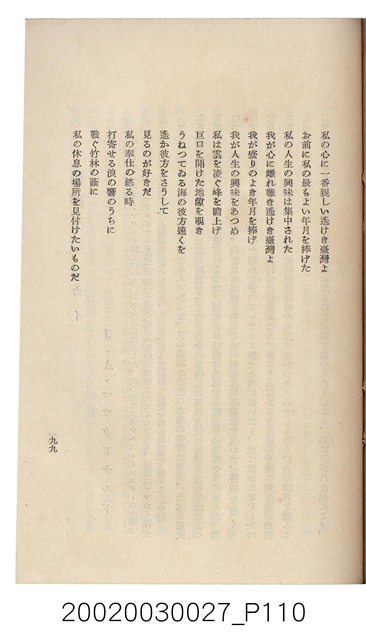 私の心に一番親しい遙けき臺灣よ
お前に私の最もよい年月を捧げた
私の人生の興味は集中された
我が心に離れ難き遙けき臺灣よ
我が盛りのよき年月を捧げ
我が人生の興味をあつめ
私は雲を凌ぐ峰を瞻上げ
巨口を開けた地獄を覗き
うねつてゐる海の彼方遠くを
遙か彼方をさうして
見るのが好きだ
私の奉仕の終る時
打寄せる浪の響のうちに
戰ぐ竹林の蔭に
私の休息の場所を見付けたいものだ
九九
20020030027_P110